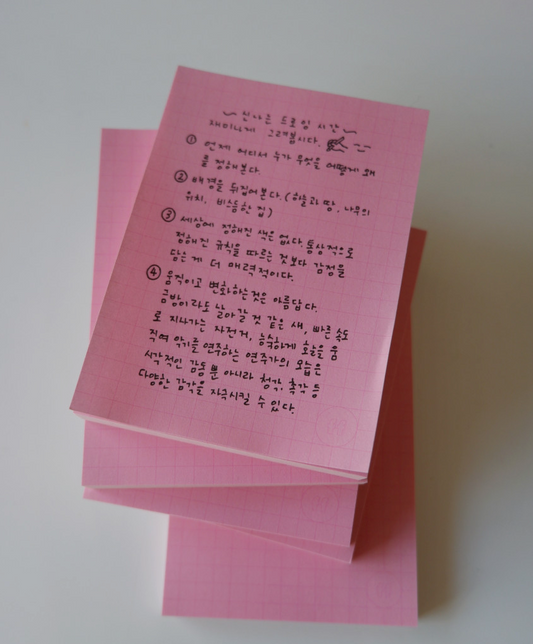 ~ 신나는 드로잉 시간 ~
재미나게 그려봅시다.
① 언제 어디서 누가 무엇을 어떻게 왜
를 정해본다.
② 배경을 뒤집어본다. (하늘과 땅, 나무의
위치, 비스듬한 집)
③ 세상에 정해진 색은 없다. 통상적으로
정해진 규칙을 따르는 것보다 감정을
담은 게 더 매력적이다.
④ 움직이고 변화하는 것은 아름답다.
금방이라도 날아갈 것 같은 새, 빠른 속도
로 지나가는 자전거, 능숙하게 오늘을 움
직여 악기를 연주하는 연주가의 모습은
시각적인 감흥 뿐 아니라 청각, 촉각 등
다양한 감각을 자극시킬 수 있다.